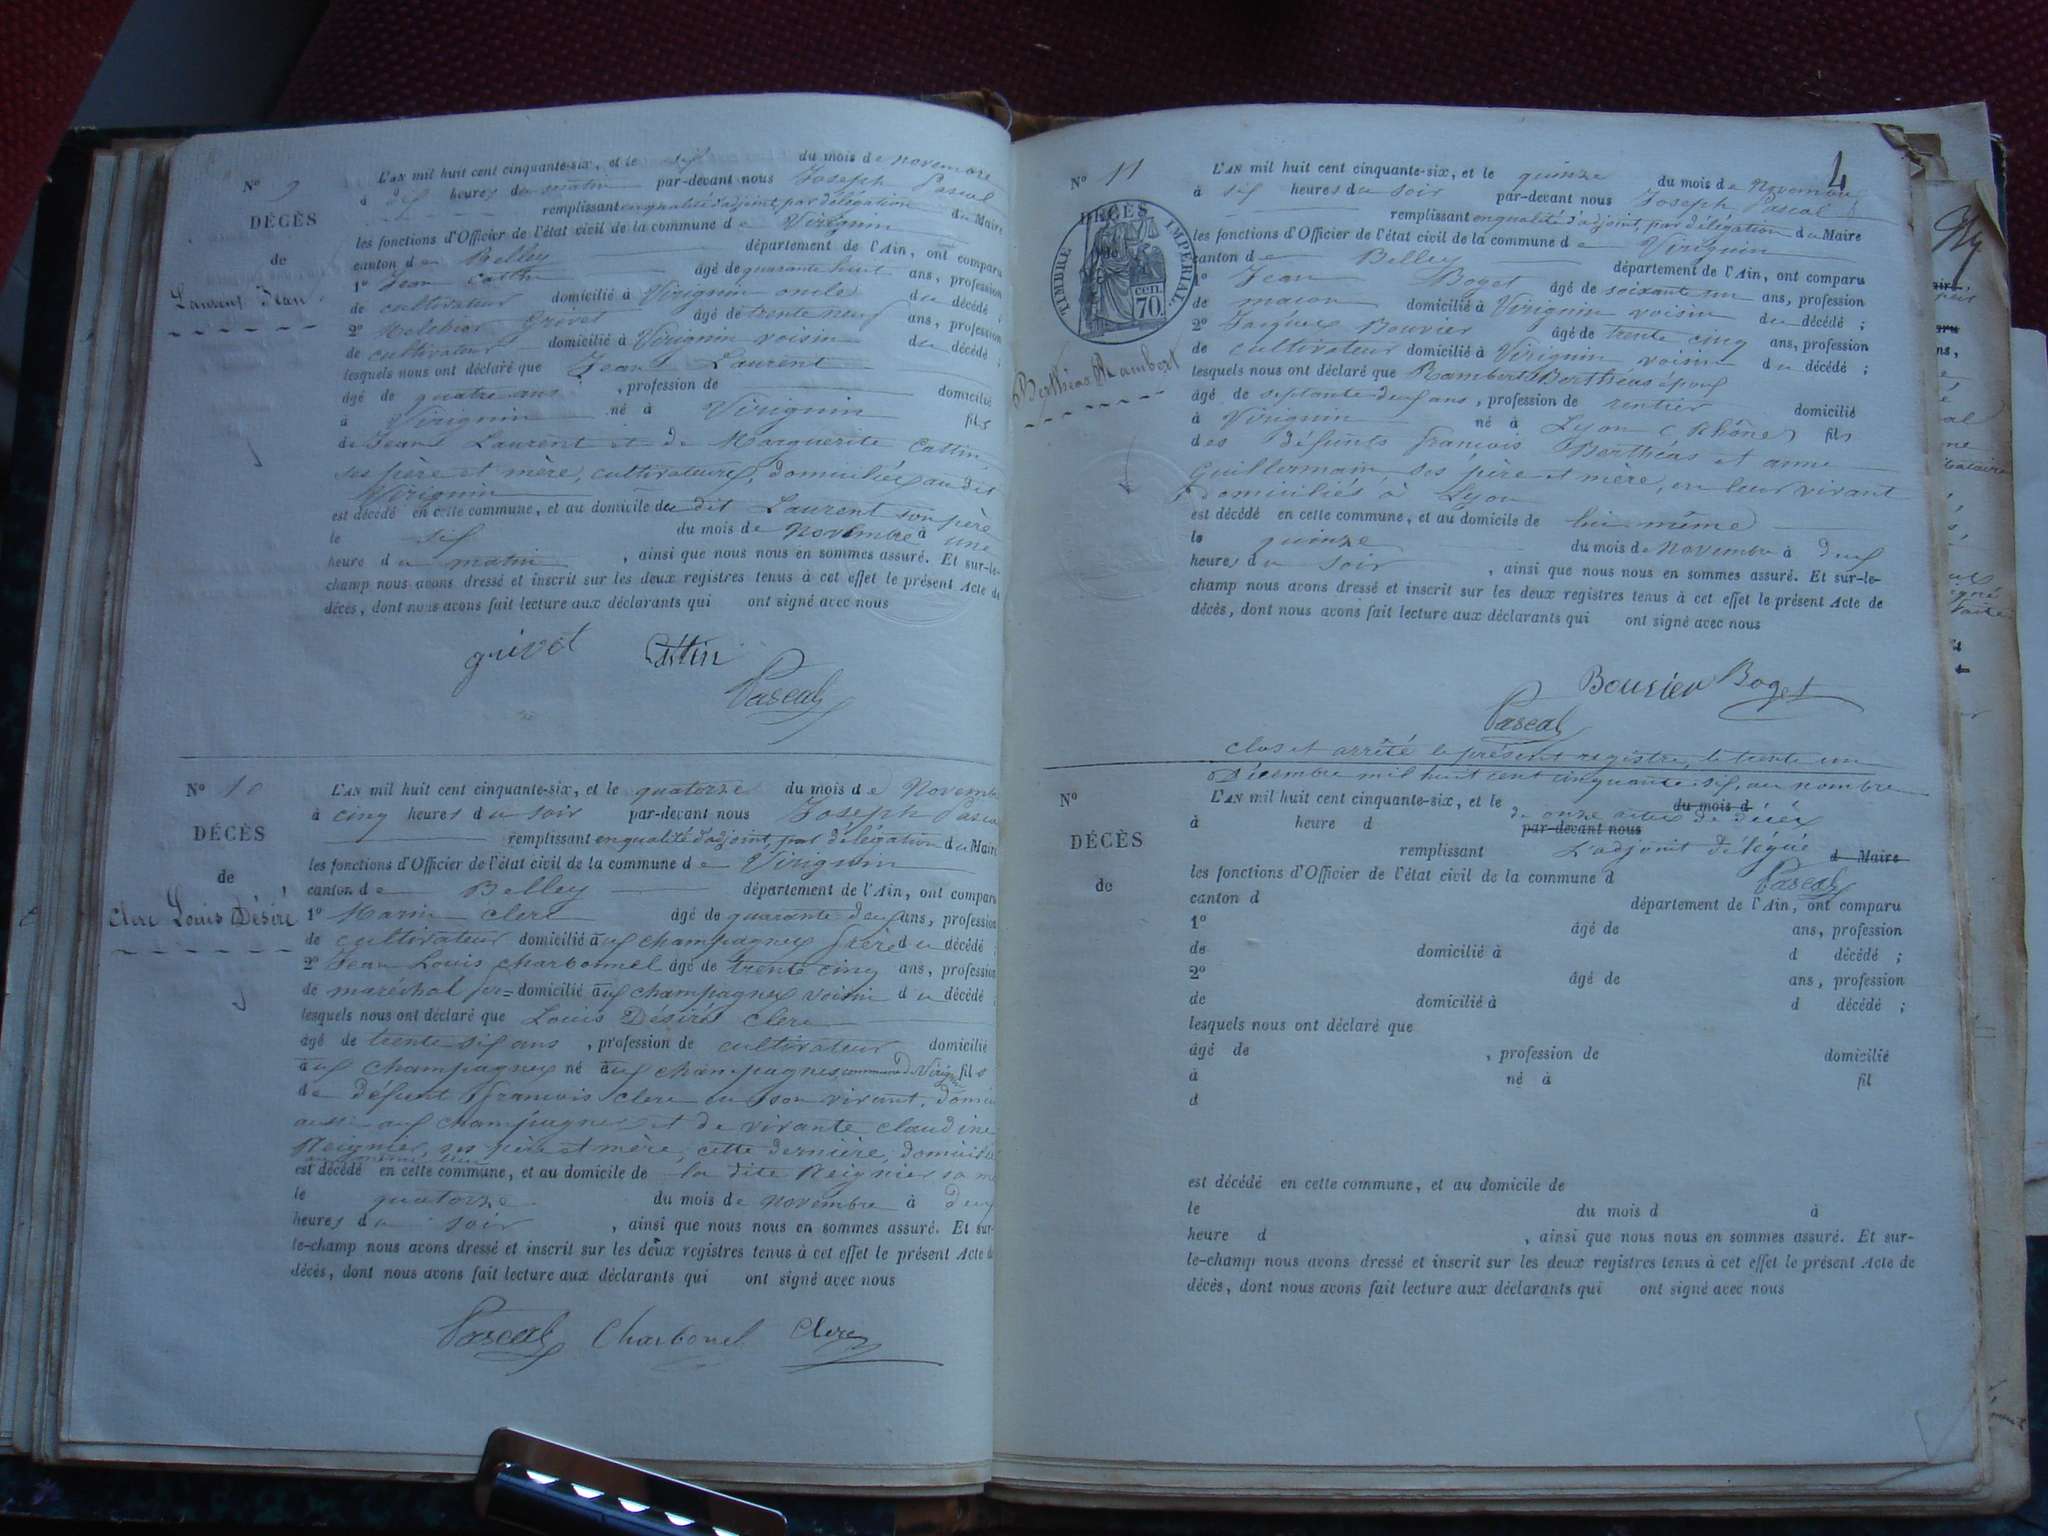 N° 9
DÉCÈS
de
Laurent Jean
L'AN mil huit cent cinquante-six, et le six du mois de Novembre
à dix heures du matin par-devant nous Joseph Pascal
remplissant en qualité d'adjoint, par délégation du Maire
les fonctions d'Officier de l'état civil de la commune de Virignin
canton de Belley département de l'Ain, ont comparu
1° Jean Cattin âgé de quarante huit ans, profession
de cultivateur domicilié à Virignin oncle du décédé ;
2° Melchior Grivet âgé de trente neuf ans, profession
de cultivateur domicilié à Virignin voisin du décédé ;
lesquels nous ont déclaré que Jean Laurent
âgé de quatre ans , profession de domicilié
à Virignin né à Virignin fils
de Jean Laurent et de Marguerite Cattin,
ses père et mère, cultivateurs, domiciliés au dit
Virignin
est décédé en cette commune, et au domicile du dit Laurent son père
le six du mois de Novembre à une
heure du matin , ainsi que nous nous en sommes assuré. Et sur-le-
champ nous avons dressé et inscrit sur les deux registres tenus à cet effet le présent Acte de
décès, dont nous avons fait lecture aux déclarants qui ont signé avec nous
grivet Cattin
Pascal
N° 10
DÉCÈS
de
Clerc Louis Désiré
L'AN mil huit cent cinquante-six, et le quatorze du mois de Novembre
à cinq heures du soir par-devant nous Joseph Pascal
remplissant en qualité d'adjoint, par délégation du Maire
les fonctions d'Officier de l'état civil de la commune de Virignin
canton de Belley département de l'Ain, ont comparu
1° Marin Clerc âgé de quarante deux ans, profession
de cultivateur domicilié aux champagnes frère du décédé ;
2° Jean Louis Charbonnel âgé de trente cinq ans, profession
de maréchal fer= domicilié aux champagnes voisin du décédé ;
lesquels nous ont déclaré que Louis Désiré Clerc
âgé de trente six ans , profession de cultivateur domicilié
aux champagnes né aux champagnes, commune de Virignin fils
de défunt François Clerc en son vivant, domici
aussi aux champagnes et de vivante claudine
Reignier, ses père et mère, cette dernière, domicilié
au même lieu
est décédé en cette commune, et au domicile de la dite Reignier sa m
le quatorze du mois de novembre à deux
heures du soir , ainsi que nous nous en sommes assuré. Et sur-
le-champ nous avons dressé et inscrit sur les deux registres tenus à cet effet le présent Acte de
décès, dont nous avons fait lecture aux déclarants qui ont signé avec nous
Pascal Charbonel Clerc
4
N° 11
DÉCÈS
de
TIMBRE IMPÉRIAL.
70 cen.
Berthéas Rambert
L'AN mil huit cent cinquante-six, et le quinze du mois de Novembre
à six heures du soir par-devant nous Joseph Pascal
remplissant en qualité d'adjoint, par délégation du Maire
les fonctions d'Officier de l'état civil de la commune de Virignin
canton de Belley département de l'Ain, ont comparu
1° Jean Boget âgé de soixante un ans, profession
de maçon domicilié à Virignin voisin du décédé ;
2° Jacques Bouvier âgé de trente cinq ans, profession
de cultivateur domicilié à Virignin voisin du décédé ;
lesquels nous ont déclaré que Rambert Berthéas époux
âgé de septante deux ans, profession de rentier domicilié
à Virignin né à Lyon (Rhône) fils
des défunts François Berthéas et anne
Guillermain, ses père et mère, en leur vivant
domiciliés à Lyon
est décédé en cette commune, et au domicile de lui-même
le quinze du mois de Novembre à deux
heures du soir , ainsi que nous nous en sommes assuré. Et sur-le-
champ nous avons dressé et inscrit sur les deux registres tenus à cet effet le présent Acte de
décès, dont nous avons fait lecture aux déclarants qui ont signé avec nous
Bouvier Boget
Pascal
Clos et arrêté le présent registre, le trente un
Décembre mil huit cent cinquante six, au nombre
de onze actes de décès
L'adjoint délégué
Pascal
N°
DÉCÈS
de
L'AN mil huit cent cinquante-six, et le du mois d
à heure d par-devant nous
remplissant d Maire
les fonctions d'Officier de l'état civil de la commune d
canton d département de l'Ain, ont comparu
1° âgé de ans, profession
de domicilié à d décédé ;
2° âgé de ans, profession
de domicilié à d décédé ;
lesquels nous ont déclaré que
âgé de , profession de domicilié
à né à fil
d
est décédé en cette commune, et au domicile de
le du mois d à
heure d , ainsi que nous nous en sommes assuré. Et sur-
le-champ nous avons dressé et inscrit sur les deux registres tenus à cet effet le présent Acte de
décès, dont nous avons fait lecture aux déclarants qui ont signé avec nous